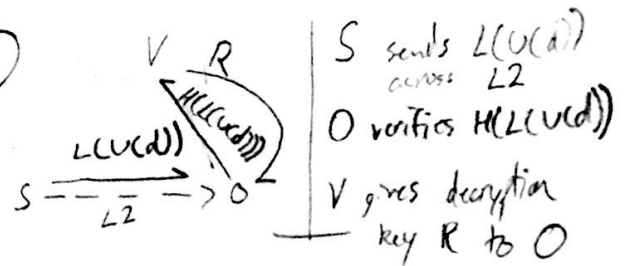 V R
H(L(U(d)))
L(U(d))
S O
L2
S sends L(U(d))
across L2
O verifies H(L(U(d))
V gives decryption
key R to O